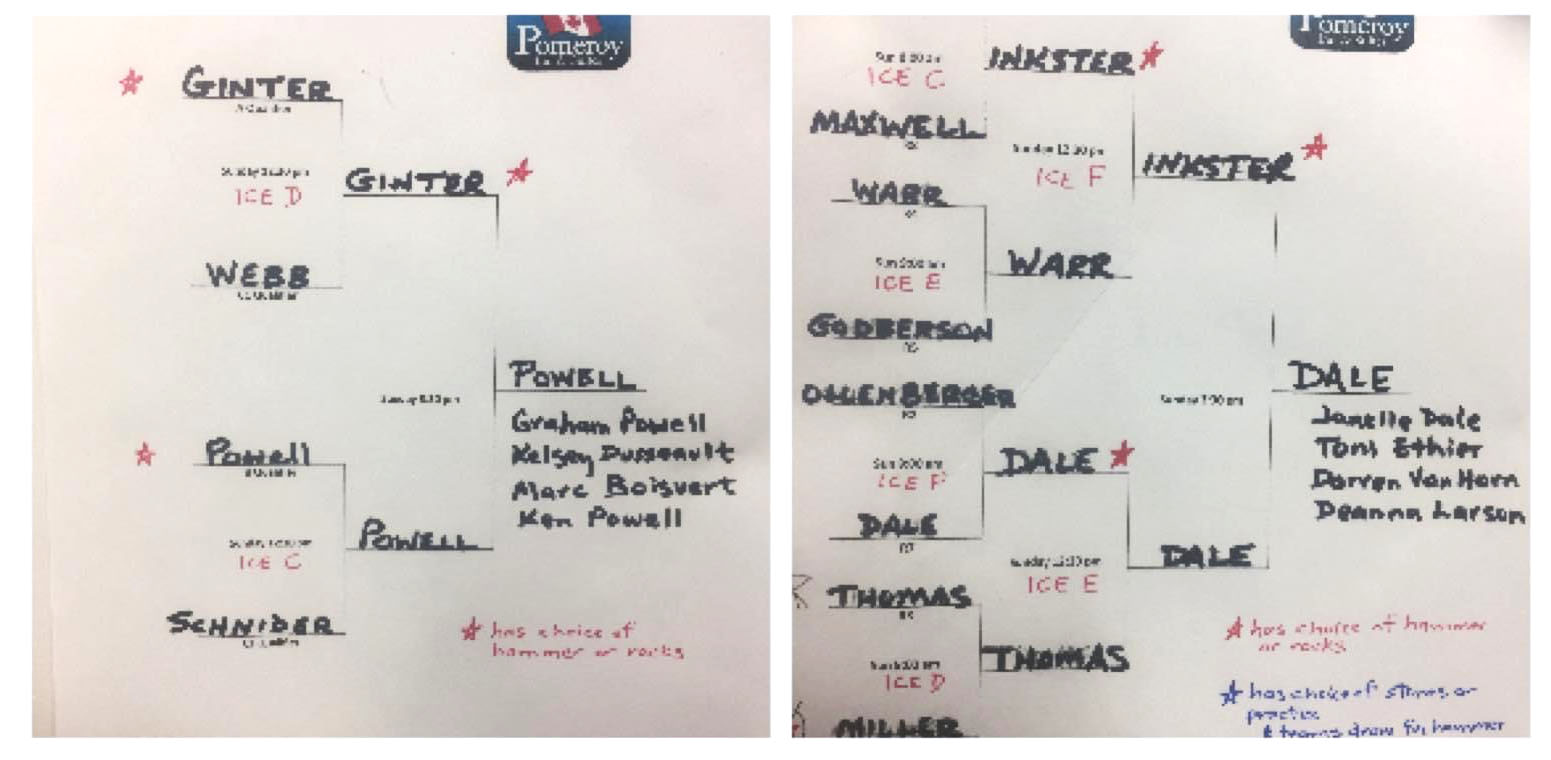 Pomeroy
GINTER
ICE D
GINTER
WEBB
POWELL
Graham Powell
Kelsey Dusseault
Marc Boisvert
Ken Powell
Powell
POWELL
ICE C
SCHNIDER
has choice of
hammer or rocks
Pomeroy
INKSTER
ICE C
MAXWELL
Sunday 12:30 pm
ICE F
INKSTER
WARR
ICE E
WARR
GODBERSON
OLLENBERGER
DALE
Janelle Dale
Toni Ethier
Darren Van Horn
Deanna Larson
DALE
ICE F
DALE
Sunday 12:30 pm
ICE E
DALE
THOMAS
THOMAS
ICE D
MILLER
has choice of hammer
or rocks
has choice of stones or
practice
teams draw for hammer